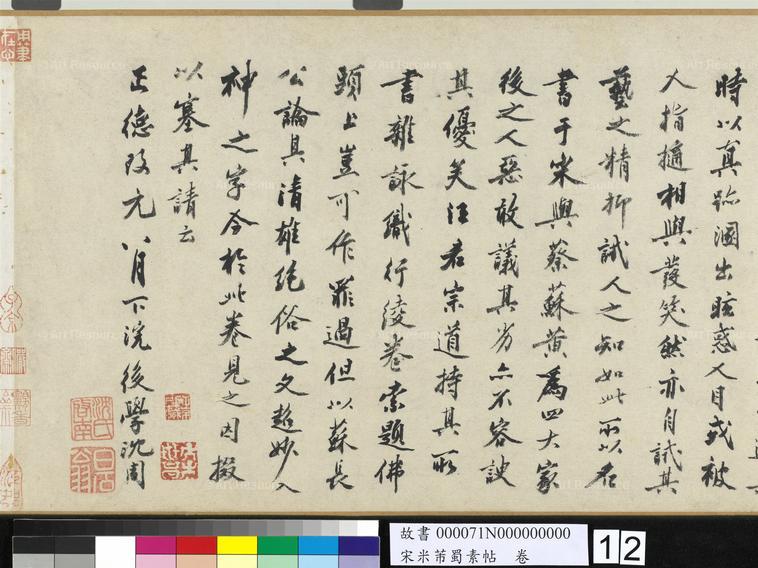 時以真跡溷出眩惑人目或被
人指擿相與發笑然亦自試其
藝之精抑試人之知如此所以名
書于宋與蔡蘇黃為四大家
後之人惡敢議其劣亦不容諛
其優矣汪君宗道持其所
書雜詠織行綾卷索題佛
頭上豈可作罪過但以蘇長
公論其清雄絕俗之文超妙入
神之字今於此卷見之因掇
以塞其請云
正德改元八月下浣後學沈周
沈氏啟南
白石翁
故書 000071N000000000
宋米芾蜀素帖 卷
12